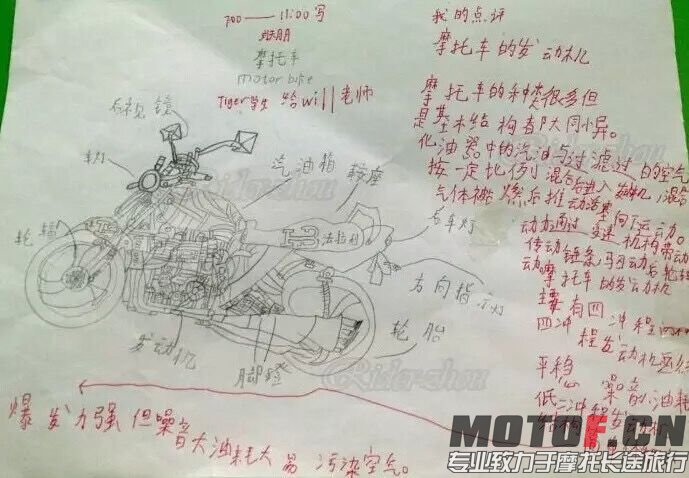 700——11:00写
摩托车
motor bike
Tiger学生 给will老师
后视镜
车灯
汽油箱
鞍座
后车灯
轮辐
法拉利
方向指示灯
发动机
脚蹬
轮胎
我的点评
摩托车的发动机
摩托车的种类很多但
是基本结构者大同小异。
化油器中的汽油与过滤过的空气
按一定比例混合后进入发动机,混合
气体被燃后推动活塞
空间下运动。
动力通过变速机构带动
传动链条
摩托车的发动机
主要有四
四冲程
程发动机
平稳
噪音 油耗
低二冲程发
结构
爆发力强但噪音大油耗大易污染空气。
Rider-zhou
Rider-zhou
MOTOF.CN
专业致力于摩托长途旅行